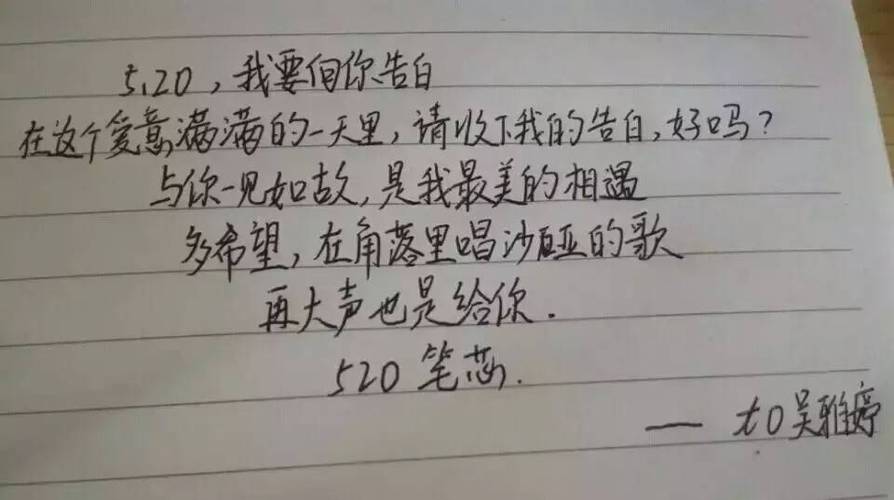 5.20，我要向你告白
在这个爱意满满的一天里，请收下我的告白，好吗？
与你一见如故，是我最美的相遇
多希望，在角落里唱沙哑的歌
再大声也是给你.
520 笔芯.
—— to吴雅婷